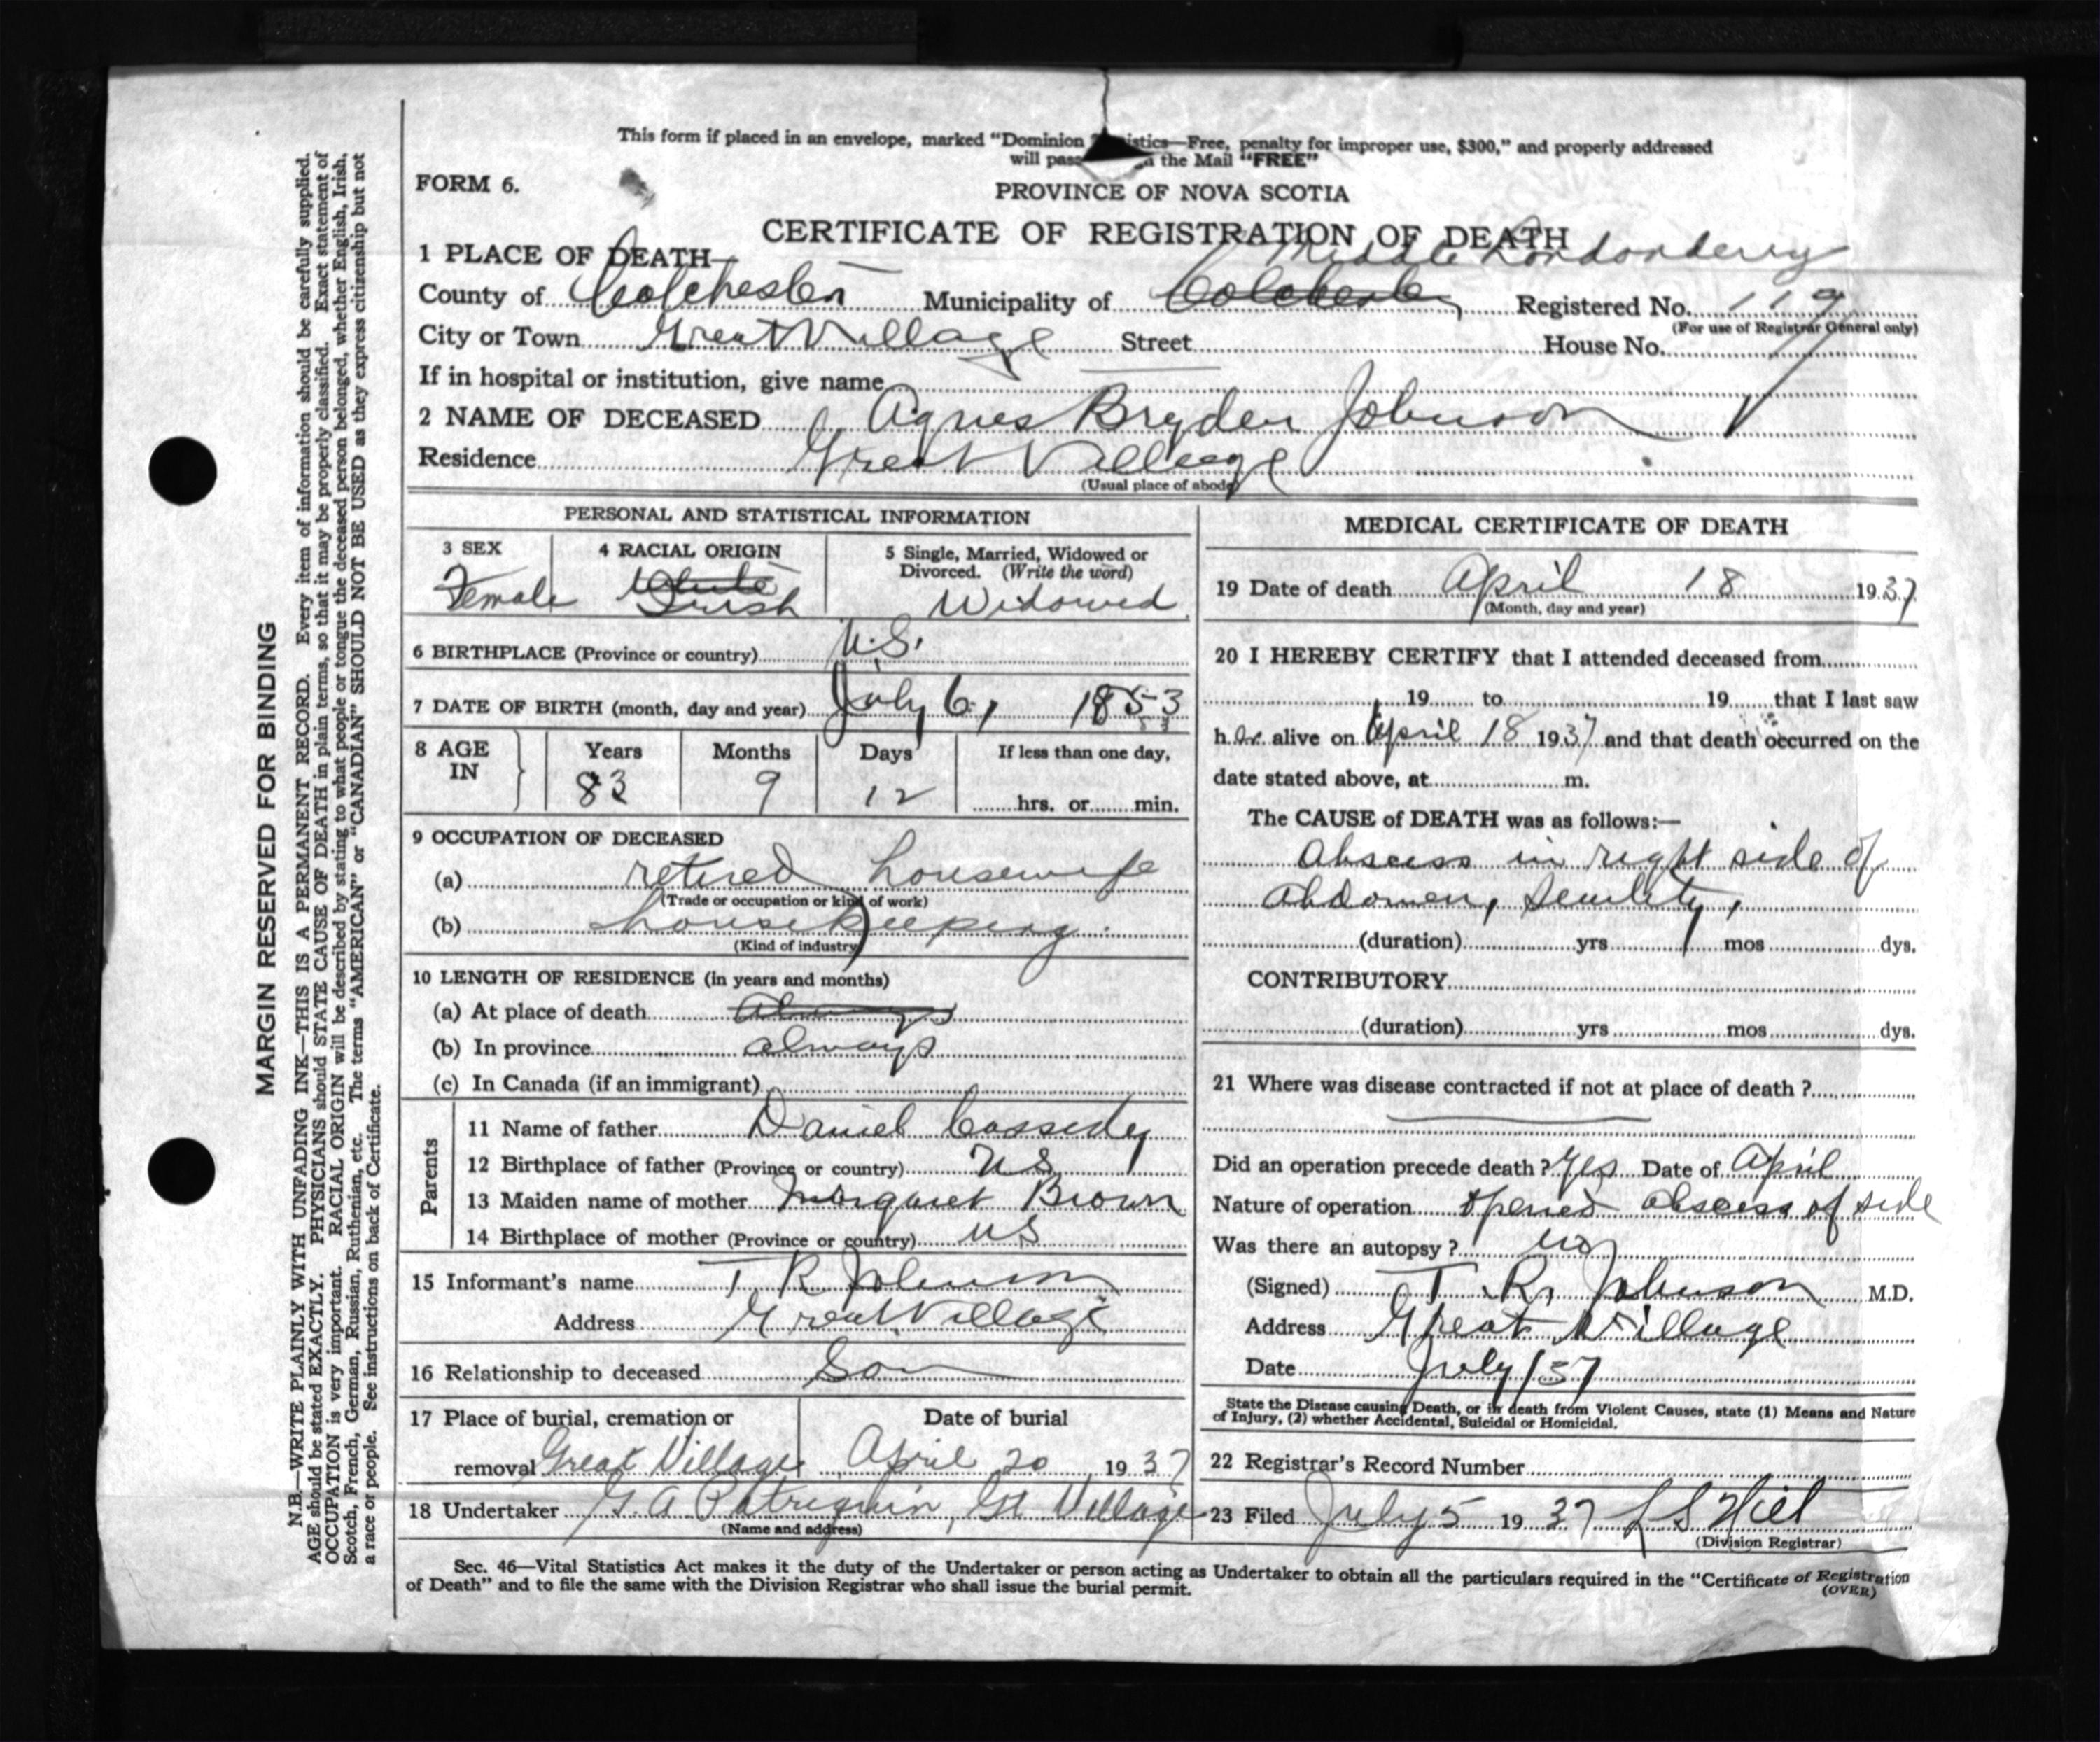 This form if placed in an envelope, marked "Dominion Statistics—Free, penalty for improper use, $300," and properly addressed
will pass the Mail "FREE"
FORM 6.
PROVINCE OF NOVA SCOTIA
CERTIFICATE OF REGISTRATION OF DEATH
1 PLACE OF DEATH— Middle Londonderry
County of Colchester Municipality of Colchester Registered No. 119
(For use of Registrar General only)
City or Town Great Village Street House No.
If in hospital or institution, give name
2 NAME OF DECEASED Agnes Bryden Johnson
Residence Great Village
(Usual place of abode)
PERSONAL AND STATISTICAL INFORMATION
3 SEX 4 RACIAL ORIGIN 5 Single, Married, Widowed or
Divorced. (Write the word)
White
Female Irish Widowed
6 BIRTHPLACE (Province or country) N.S.
7 DATE OF BIRTH (month, day and year) July 6, 1853
53
8 AGE IN Years Months Days If less than one day,
83 9 12 hrs. or min.
9 OCCUPATION OF DECEASED
(a) retired housewife
(Trade or occupation or kind of work)
(b) housekeeping.
(Kind of industry)
10 LENGTH OF RESIDENCE (in years and months)
(a) At place of death always
(b) In province always
(c) In Canada (if an immigrant)
Parents
11 Name of father Daniel Cassidy
12 Birthplace of father (Province or country) NS
13 Maiden name of mother Margaret Brown
14 Birthplace of mother (Province or country) NS
15 Informant's name T R Johnson
Address Great Village
16 Relationship to deceased Son
17 Place of burial, cremation or Date of burial
removal Great Village April 20 1937
18 Undertaker G. A Patriquin, Gt Village
(Name and address)
MEDICAL CERTIFICATE OF DEATH
19 Date of death April 18 1937
(Month, day and year)
20 I HEREBY CERTIFY that I attended deceased from
19 to 19 that I last saw
her alive on April 18 1937 and that death occurred on the
date stated above, at m.
The CAUSE of DEATH was as follows:—
Abscess in right side of
abdomen, senility,
(duration) yrs 1 mos dys.
CONTRIBUTORY
(duration) yrs mos dys.
21 Where was disease contracted if not at place of death?
Did an operation precede death? Yes Date of April
Nature of operation opened abscess of side
Was there an autopsy? no
(Signed) T. R. Johnson M.D.
Address Great Village
Date July 1/37
State the Disease causing Death, or in death from Violent Causes, state (1) Means and Nature
of Injury, (2) whether Accidental, Suicidal or Homicidal.
22 Registrar's Record Number
23 Filed July 5 1937 L S Hill
(Division Registrar)
Sec. 46—Vital Statistics Act makes it the duty of the Undertaker or person acting as Undertaker to obtain all the particulars required in the "Certificate of Registration
of Death" and to file the same with the Division Registrar who shall issue the burial permit.
(OVER)
MARGIN RESERVED FOR BINDING
N.B.—WRITE PLAINLY WITH UNFADING INK—THIS IS A PERMANENT RECORD. Every item of information should be carefully supplied.
AGE should be stated EXACTLY. PHYSICIANS should STATE CAUSE OF DEATH in plain terms, so that it may be properly classified. Exact statement of
OCCUPATION is very important. RACIAL ORIGIN will be described by stating to what people or tongue the deceased person belonged, whether English, Irish,
Scotch, French, German, Russian, Ruthenian, etc. The terms "AMERICAN" or "CANADIAN" SHOULD NOT BE USED as they express citizenship but not
a race or people. See instructions on back of Certificate.